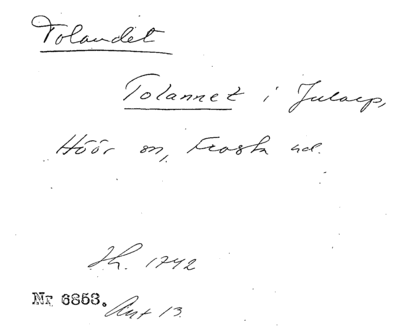 Tolandet
Tolannet i Jularp,
Höör sn, Frosta hd.
Lh. 1742
Nr 6858. Ant 13.